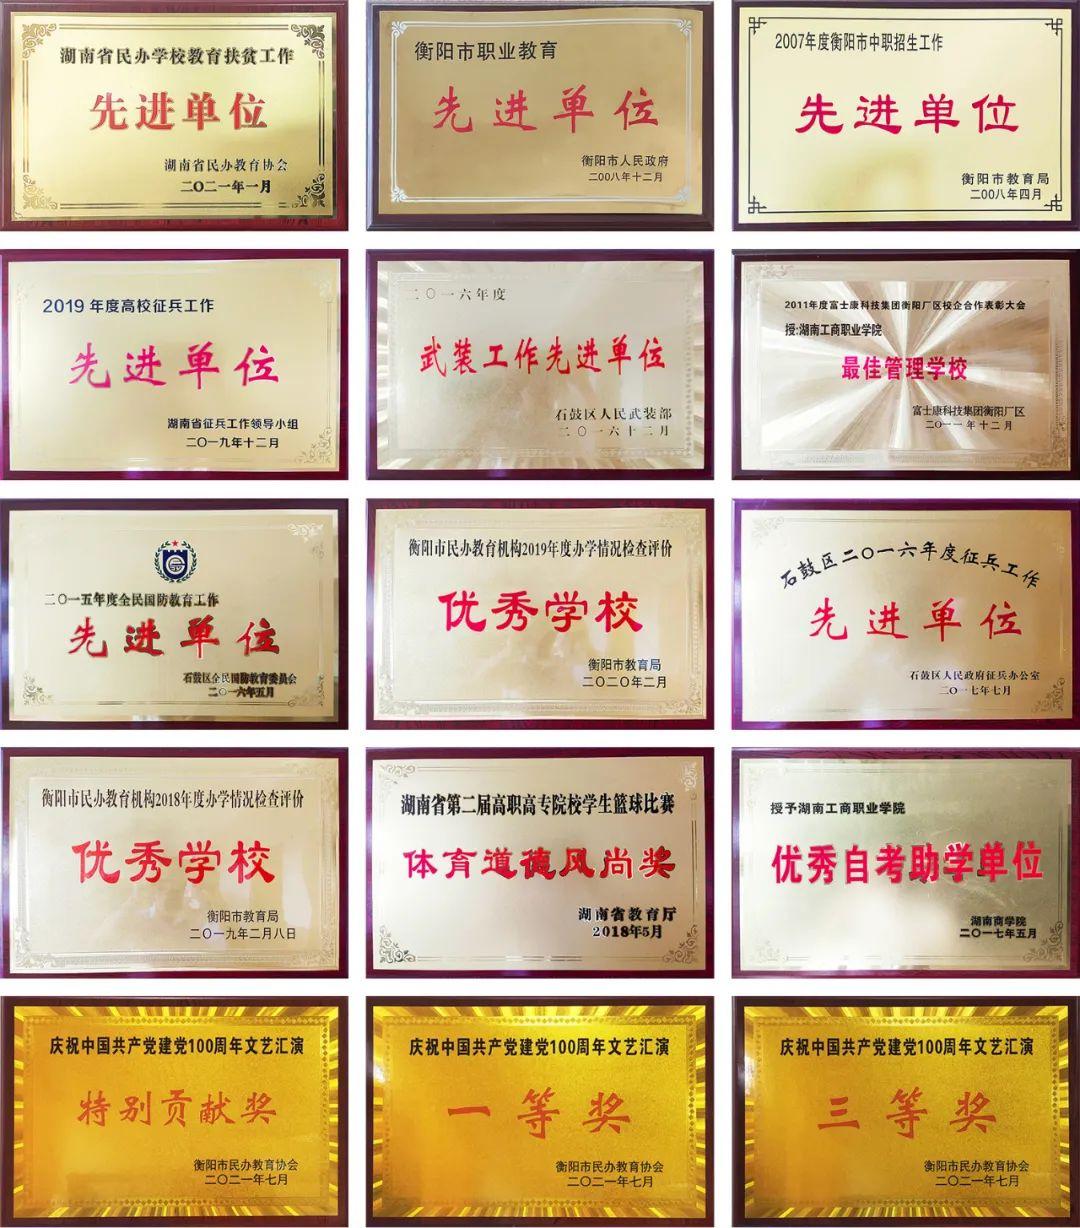 湖南省民办学校教育扶贫工作
先进单位
湖南省民办教育协会
二〇二一年一月
衡阳市职业教育
先进单位
衡阳市人民政府
二00八年十二月
2007年度衡阳市中职招生工作
先进单位
衡阳市教育局
二00八年四月
2019年度高校征兵工作
先进单位
湖南省征兵工作领导小组
二〇一九年十二月
二〇一六年度
武装工作先进单位
石鼓区人民武装部
二〇一六十二月
2011年度富士康科技集团衡阳厂区校企合作表彰大会
授:湖南工商职业学院
最佳管理学校
富士康科技集团衡阳厂区
二〇一一年十二月
二〇一五年度全民国防教育工作
先进单位
石鼓区全民国防教育委员会
二〇一六年五月
衡阳市民办教育机构2019年度办学情况检查评价
优秀学校
衡阳市教育局
二〇二〇年二月
石鼓区二〇一六年度征兵工作
先进单位
石鼓区人民政府征兵办公室
二〇一七年七月
衡阳市民办教育机构2018年度办学情况检查评价
优秀学校
衡阳市教育局
二〇一九年二月八日
湖南省第二届高职高专院校学生篮球比赛
体育道德风尚奖
湖南省教育厅
2018年5月
授予湖南工商职业学院
优秀自考助学单位
湖南商学院
二〇一七年五月
庆祝中国共产党建党100周年文艺汇演
特别贡献奖
衡阳市民办教育协会
二〇二一年七月
庆祝中国共产党建党100周年文艺汇演
一等奖
衡阳市民办教育协会
二〇二一年七月
庆祝中国共产党建党100周年文艺汇演
三等奖
衡阳市民办教育协会
二〇二一年七月